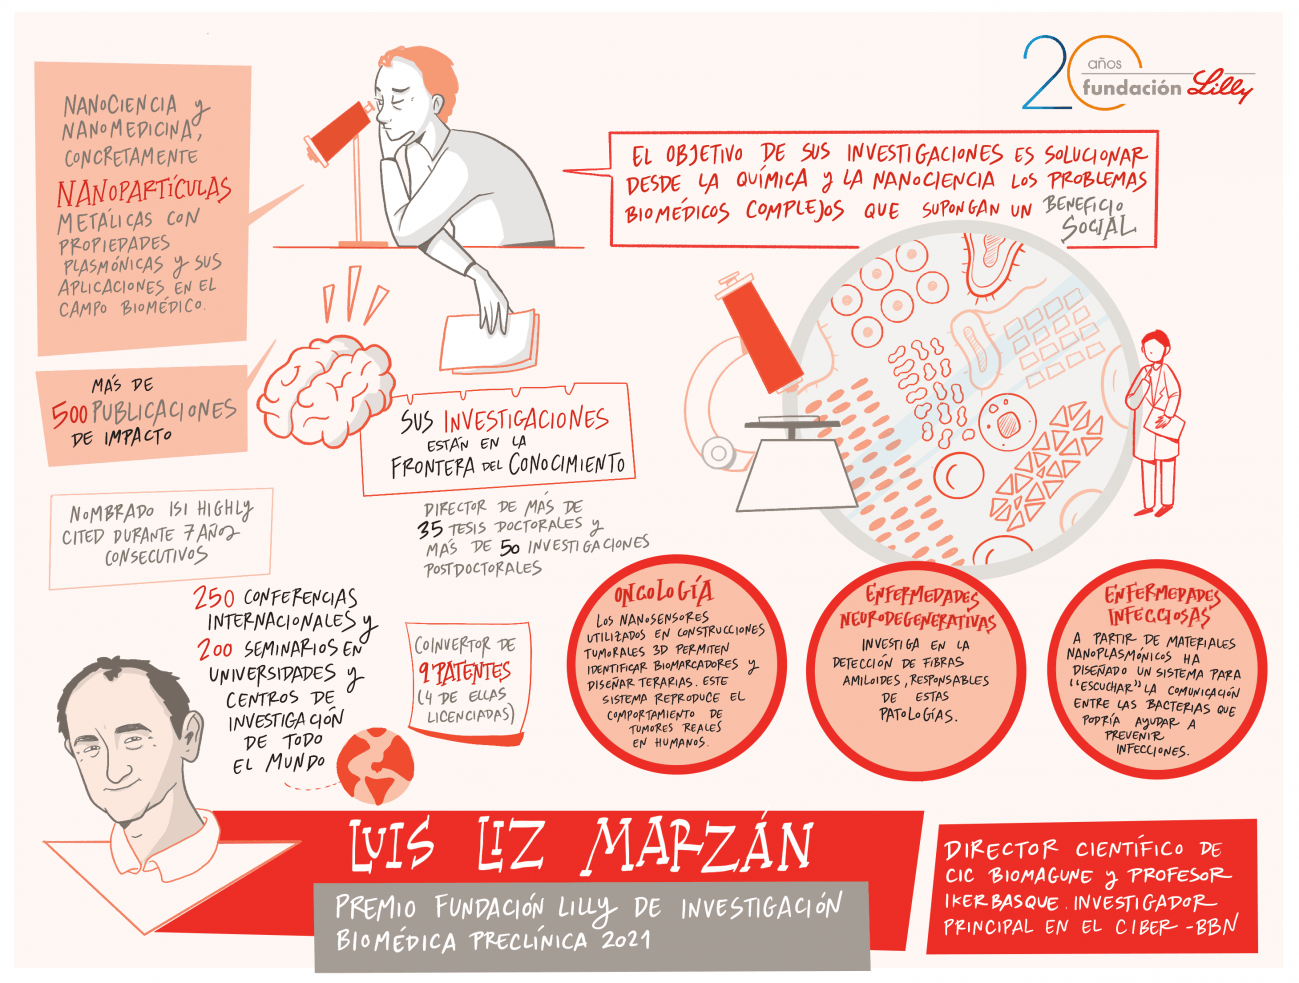 20 años
fundación Lilly
NANOCIENCIA y
NANOMEDICINA,
CONCRETAMENTE
NANOPARTÍCULAS
METÁLICAS CON
PROPIEDADES
PLASMÓNICAS y SUS
APLICACIONES EN EL
CAMPO BIOMÉDICO.
EL OBJETIVO DE SUS INVESTIGACIONES ES SOLUCIONAR
DESDE LA QUÍMICA y LA NANOCIENCIA LOS PROBLEMAS
BIOMÉDICOS COMPLEJOS QUE SUPONGAN UN BENEFICIO
SOCIAL
MÁS DE
500 PUBLICACIONES
DE IMPACTO
SUS INVESTIGACIONES
ESTÁN EN LA
FRONTERA DEL CONOCIMIENTO
NOMBRADO ISI HIGHLY
CITED DURANTE 7 AÑOS
CONSECUTIVOS
DIRECTOR DE MÁS DE
35 TESIS DOCTORALES y
MÁS DE 50 INVESTIGACIONES
POSTDOCTORALES
250 CONFERENCIAS
INTERNACIONALES y
200 SEMINARIOS EN
UNIVERSIDADES y
CENTROS DE
INVESTIGACIÓN
DE TODO
EL MUNDO
COINVERTOR DE
9 PATENTES
(4 DE ELLAS
LICENCIADAS)
ONCOLOGÍA
LOS NANOSENSORES
UTILIZADOS EN CONSTRUCCIONES
TUMORALES 3D PERMITEN
IDENTIFICAR BIOMARCADORES y
DISEÑAR TERARIAS. ESTE
SISTEMA REPRODUCE EL
COMPORTAMIENTO DE
TUMORES REALES
EN HUMANOS.
ENFERMEDADES
NEURODEGENERATIVAS
INVESTIGA EN LA
DETECCIÓN DE FIBRAS
AMILOIDES, RESPONSABLES
DE ESTAS
PATOLOGÍAS.
ENFERMEDADES
INFECCIOSAS
A PARTIR DE MATERIALES
NANOPLASMÓNICOS HA
DISEÑADO UN SISTEMA PARA
"ESCUCHAR" LA COMUNICACIÓN
ENTRE LAS BACTERIAS QUE
PODRÍA AYUDAR A
PREVENIR
INFECCIONES.
LUIS LIZ MARZÁN
PREMIO FUNDACIÓN LILLY DE INVESTIGACIÓN
BIOMÉDICA PRECLÍNICA 2021
DIRECTOR CIENTÍFICO DE
CIC BIOMAGUNE y PROFESOR
IKERBASQUE. INVESTIGADOR
PRINCIPAL EN EL CIBER -BBN